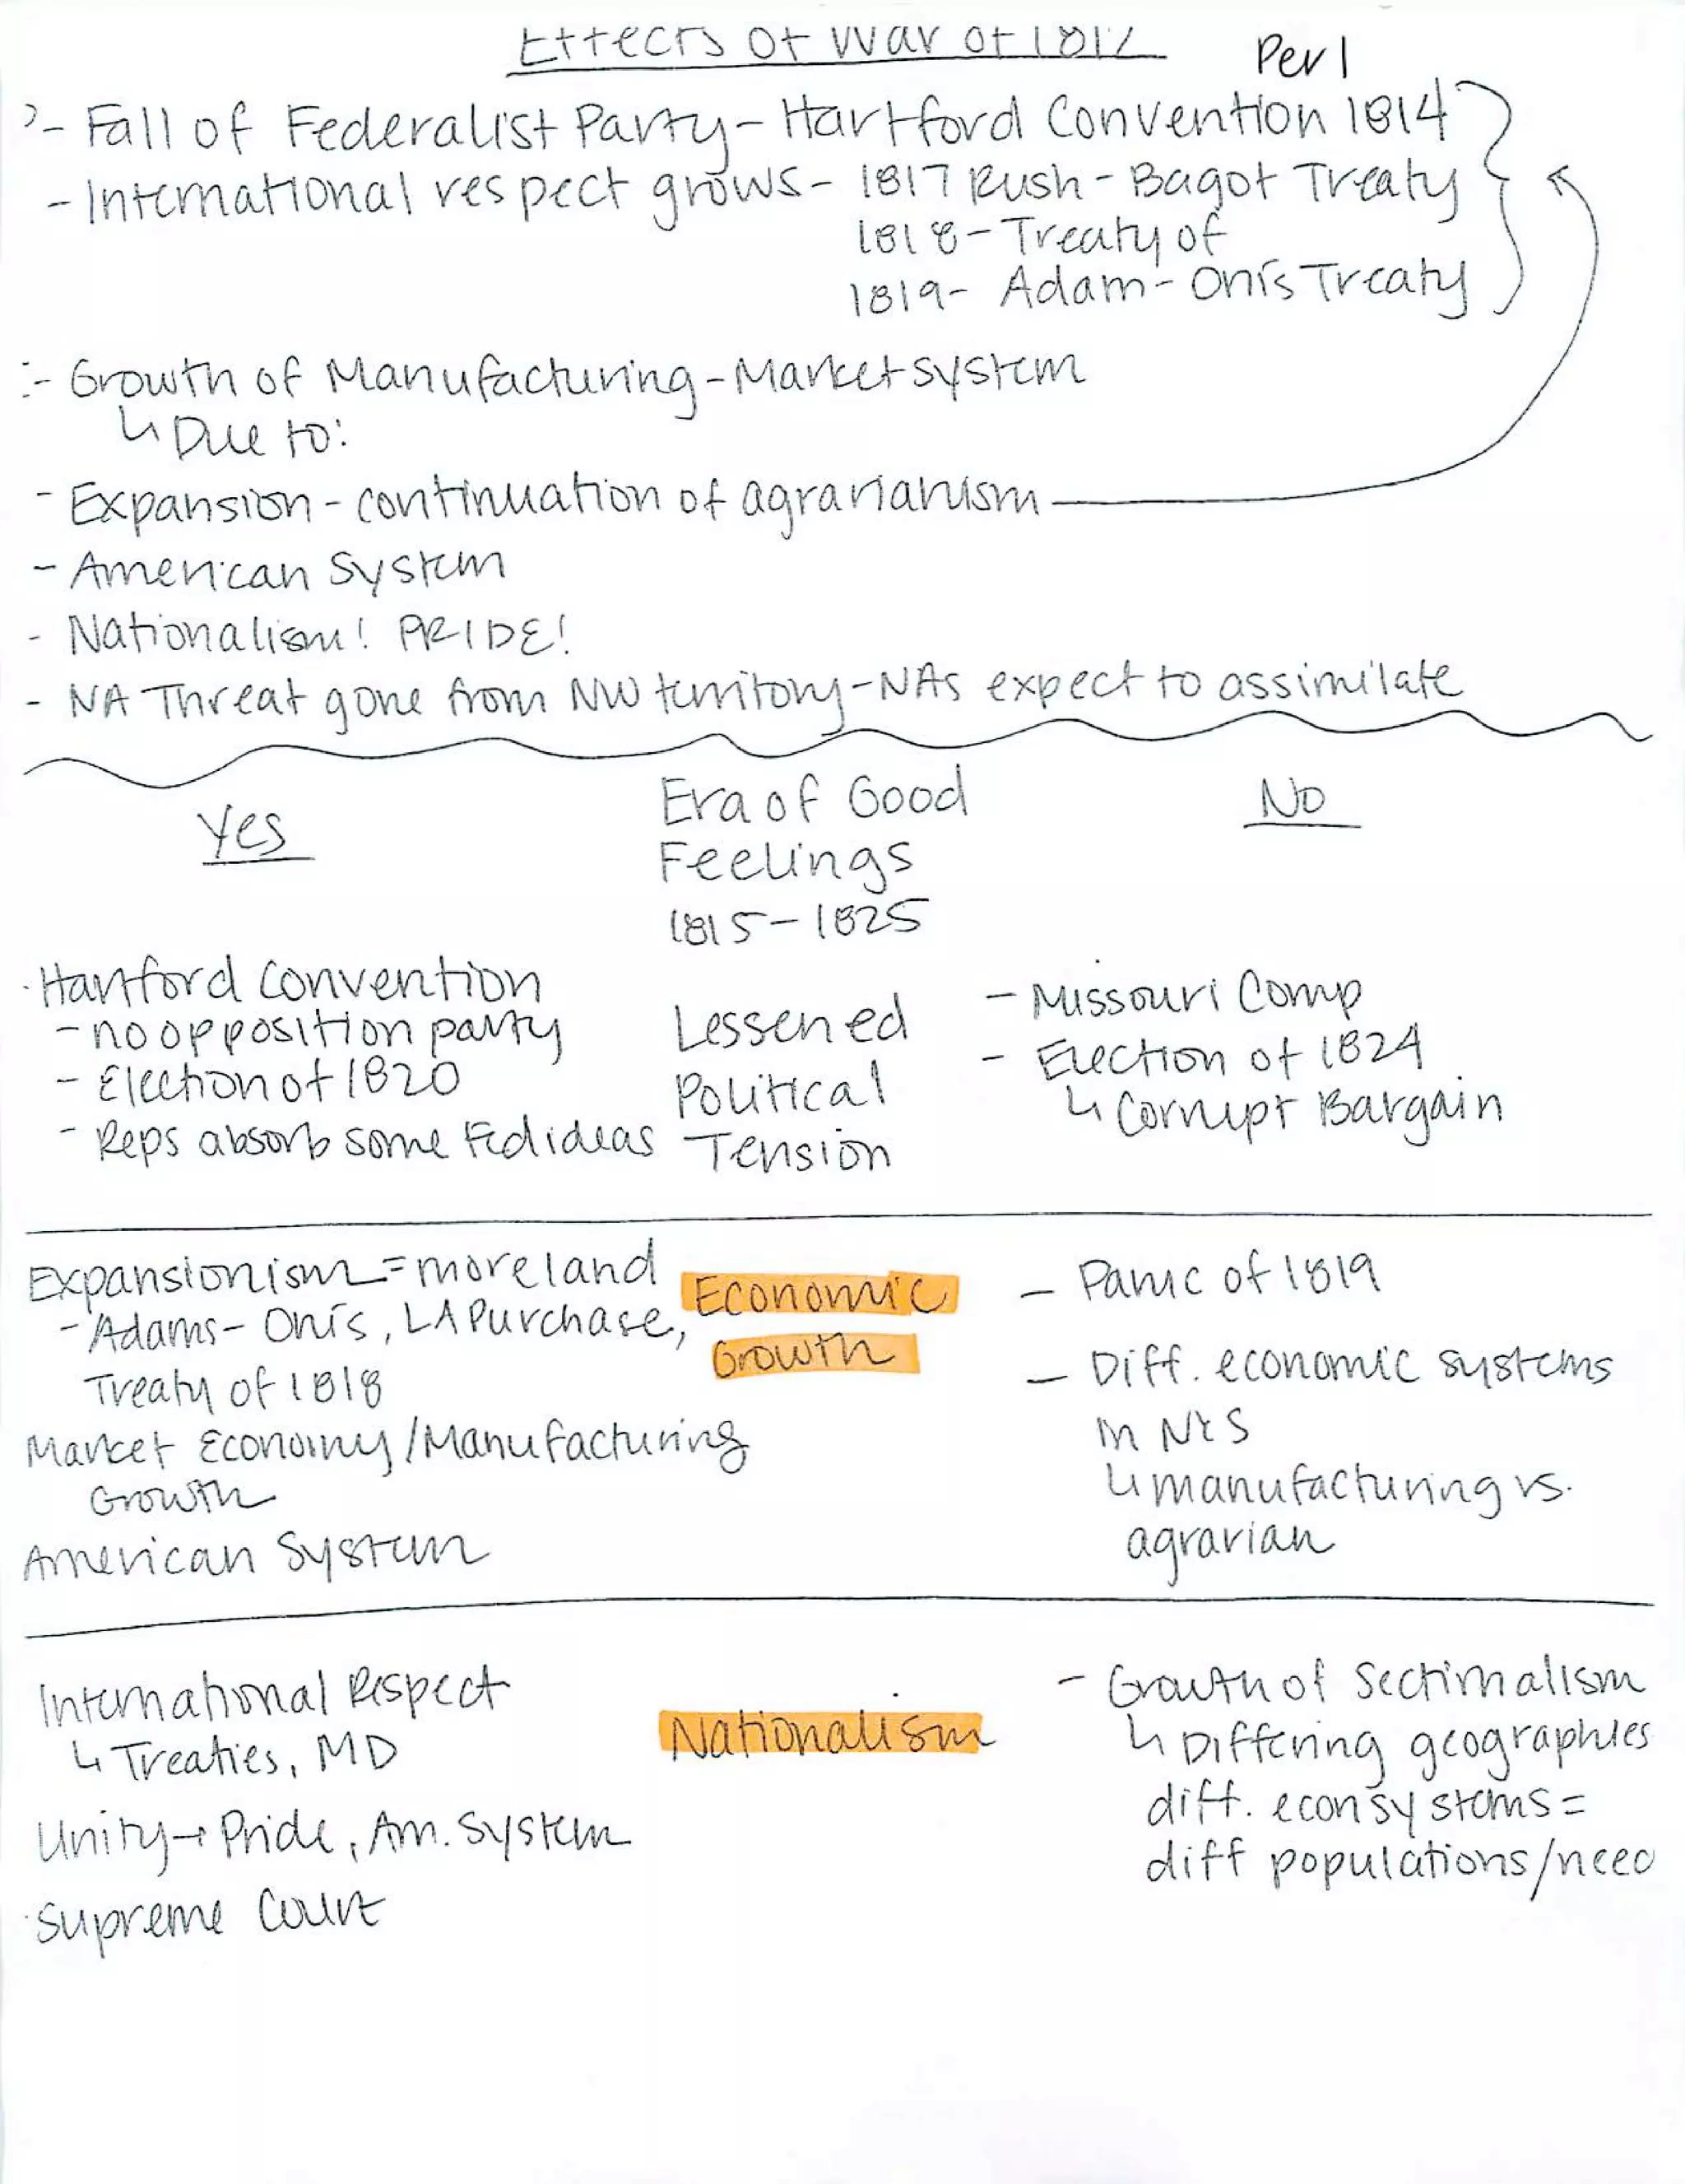 Effects of War of 1812
Per 1
- Fall of Federalist Party - Hartford Convention 1814
- International respect grows - 1817 Rush-Bagot Treaty
1818 - Treaty of
1819 - Adam-Onís Treaty
- Growth of Manufacturing - Market system
↳ Due to:
- Expansion - continuation of agrarianism
- American System
- Nationalism! PRIDE!
- NA Threat gone from NW territory - NAs expect to assimilate
Yes
Era of Good
Feelings
1815-1825
No
Hartford Convention
- no opposition party
- Election of 1820
- Reps absorb some Fed ideas
Lessened
Political
Tension
- Missouri Comp
- Election of 1824
↳ Corrupt Bargain
Expansionism = more land
- Adams-Onís, LA Purchase,
Treaty of 1818
Market Economy/Manufacturing
Growth
American System
Economic
Growth
- Panic of 1819
- Diff. economic systems
in N & S
↳ manufacturing vs.
agrarian
International Respect
↳ Treaties, MD
Unity → Pride, Am. System
Supreme Court
Nationalism
- Growth of Sectionalism
↳ Differing geographies
diff. econ systems =
diff populations/need